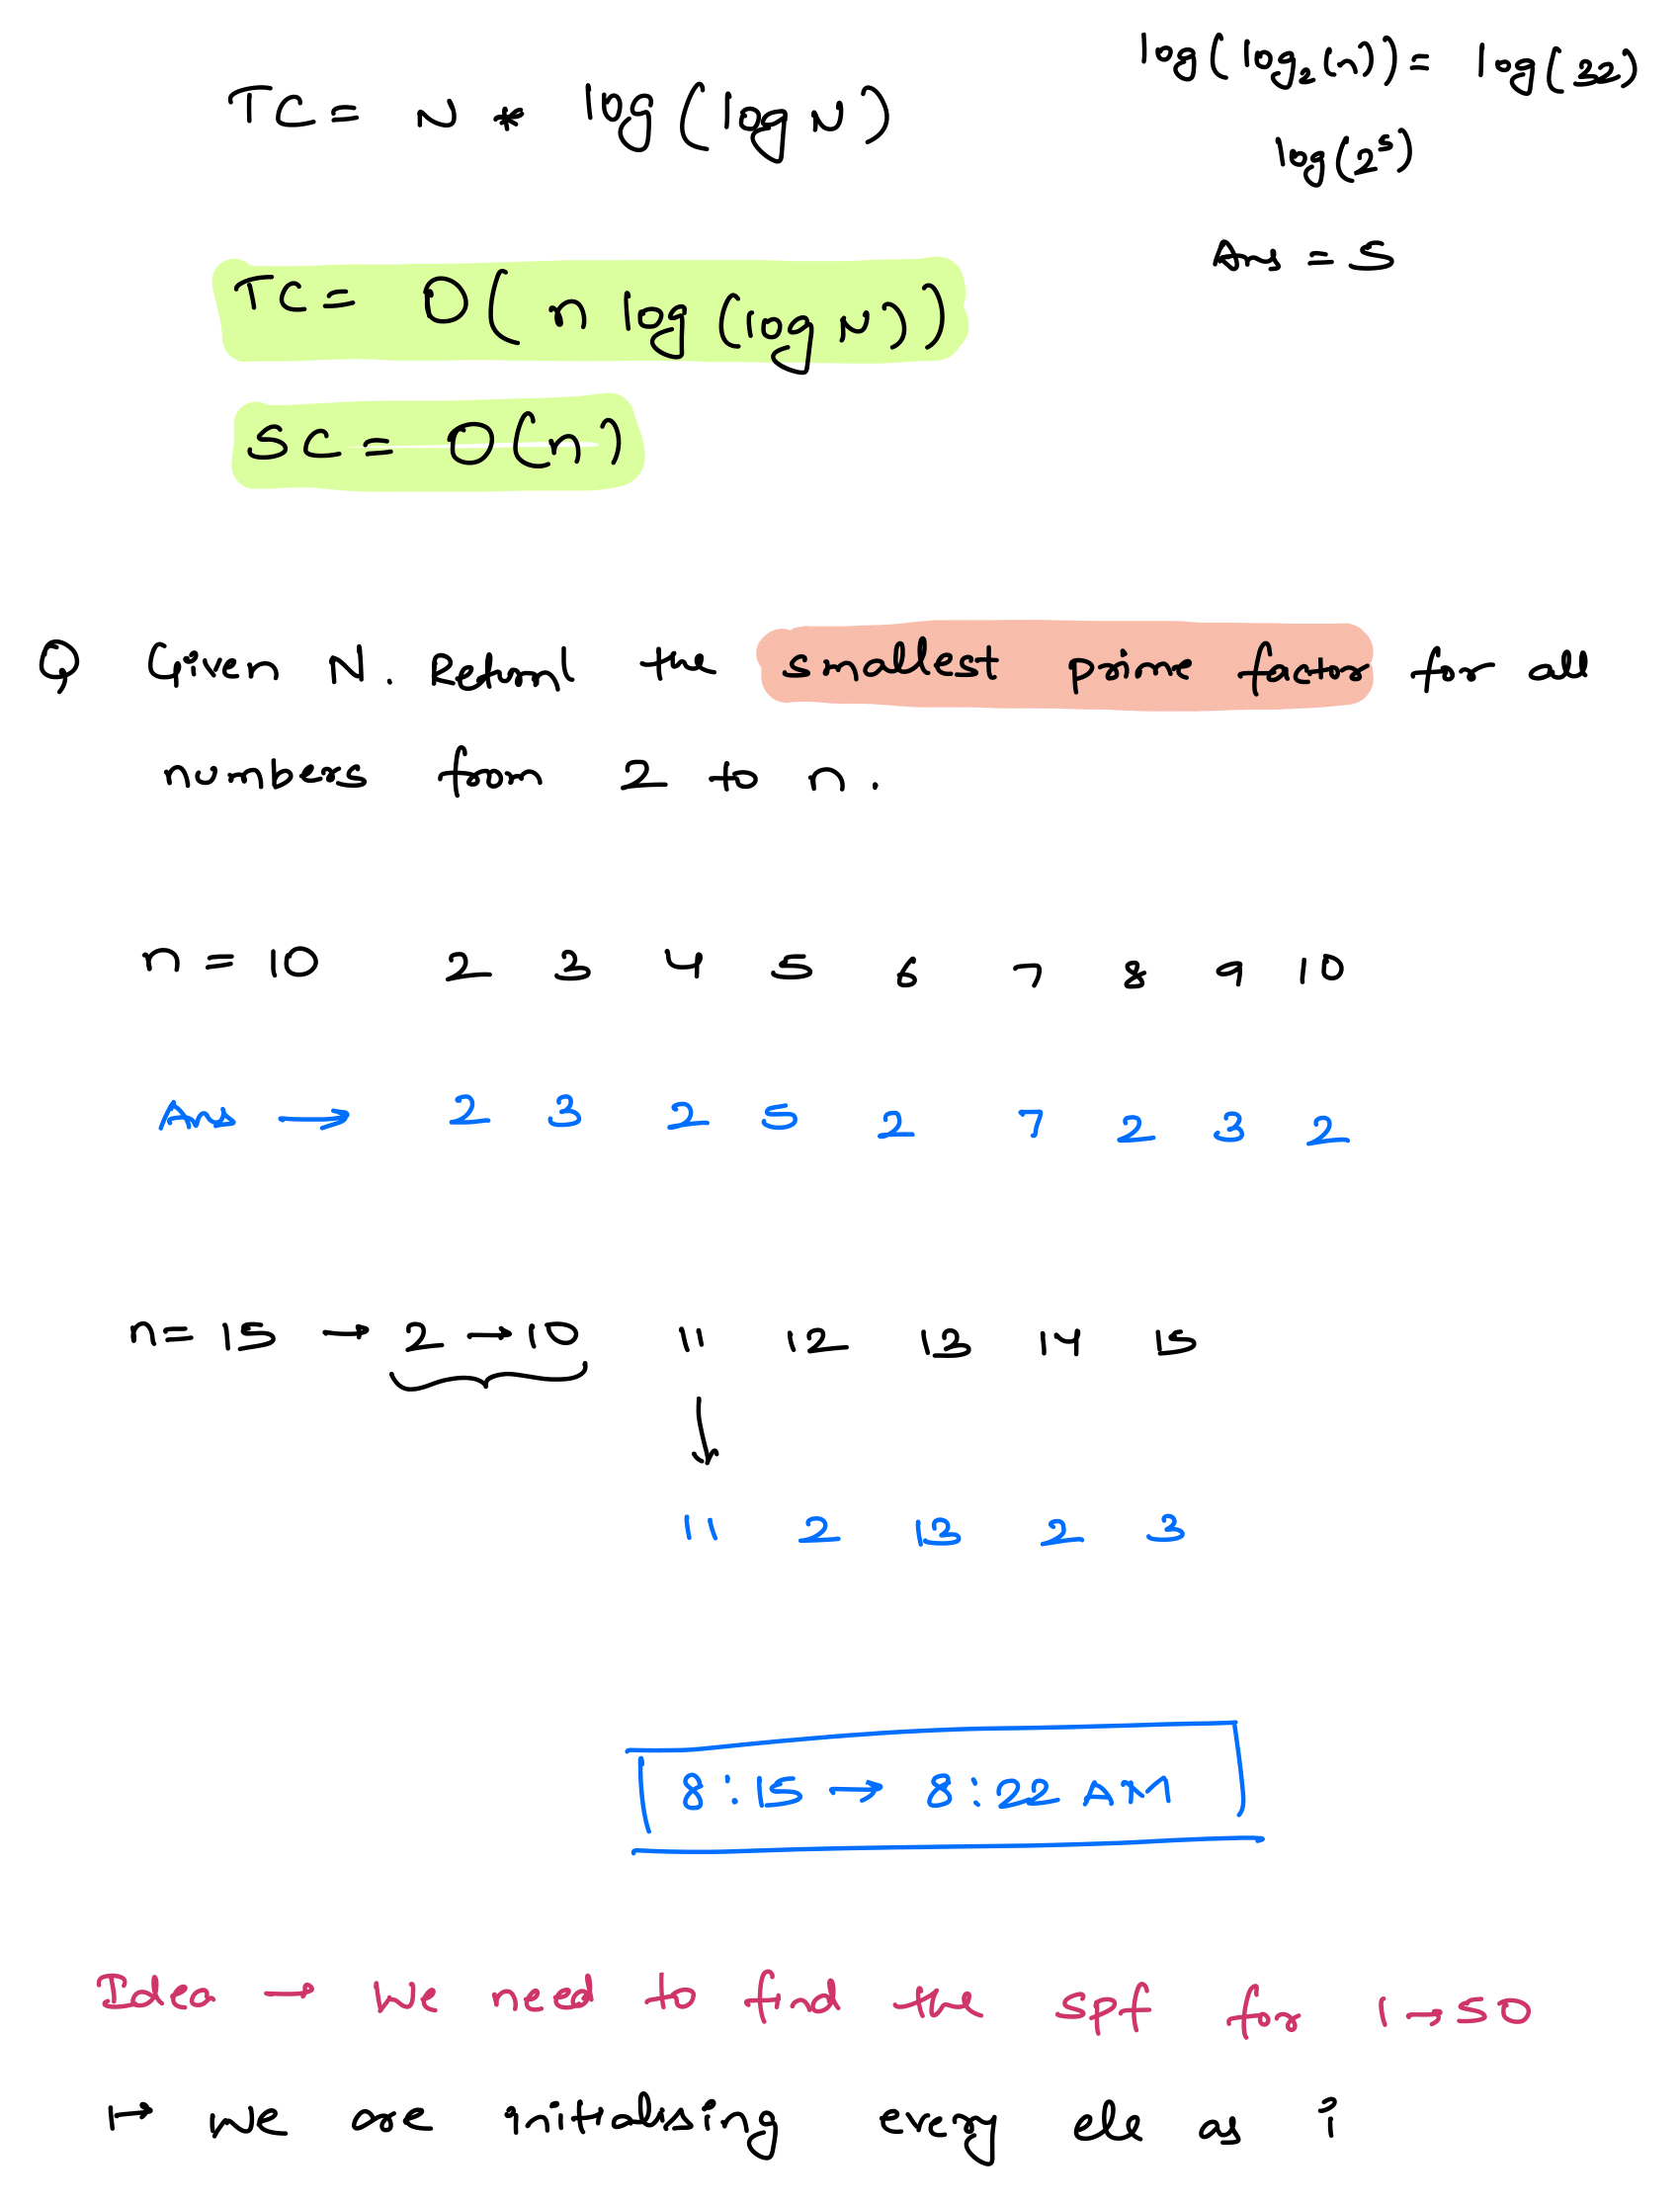 TC = N * log(log N)
log(log₂(n)) = log(32)
log(2⁵)
Ans = 5
TC = O(n log(log N))
SC = O(n)
Q Given N. Return the smallest prime factor for all
numbers from 2 to n.
n = 10 2 3 4 5 6 7 8 9 10
Ans → 2 3 2 5 2 7 2 3 2
n = 15 → 2 → 10 11 12 13 14 15
11 2 13 2 3
8:15 → 8:22 AM
Idea → We need to find the spf for 1 → 50
↦ we are initialising every ele as i